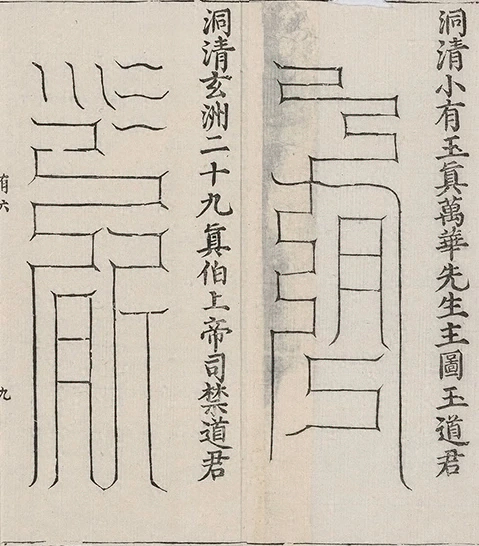 洞清小有玉眞萬華先生主圖玉道君
洞清玄洲二十九眞伯上帝司禁道君
有六
九